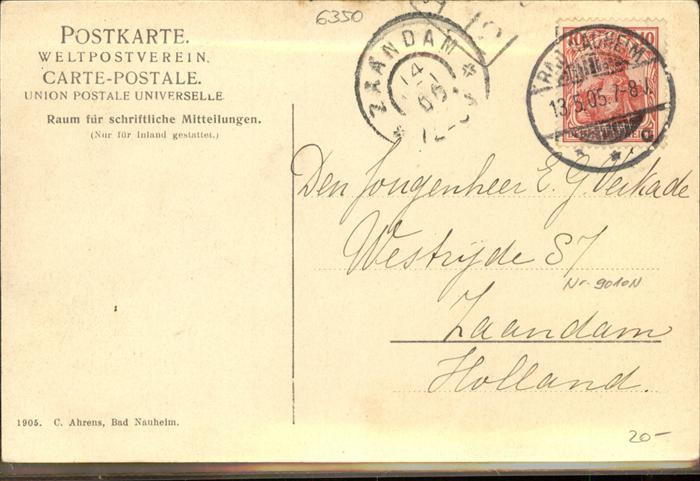 6350
POSTKARTE.
WELTPOSTVEREIN.
CARTE-POSTALE.
UNION POSTALE UNIVERSELLE
Raum für schriftliche Mitteilungen.
(Nur für Inland gestattet.)
ZAANDAM
14
05
10
10
BAD NAUHEIM
13.5.05.7-8V.
Den Jongenheer E. G. Verkade
Westzijde 57
Nr. 9010N
Zaandam
Holland.
1905. C. Ahrens, Bad Nauheim.
20-